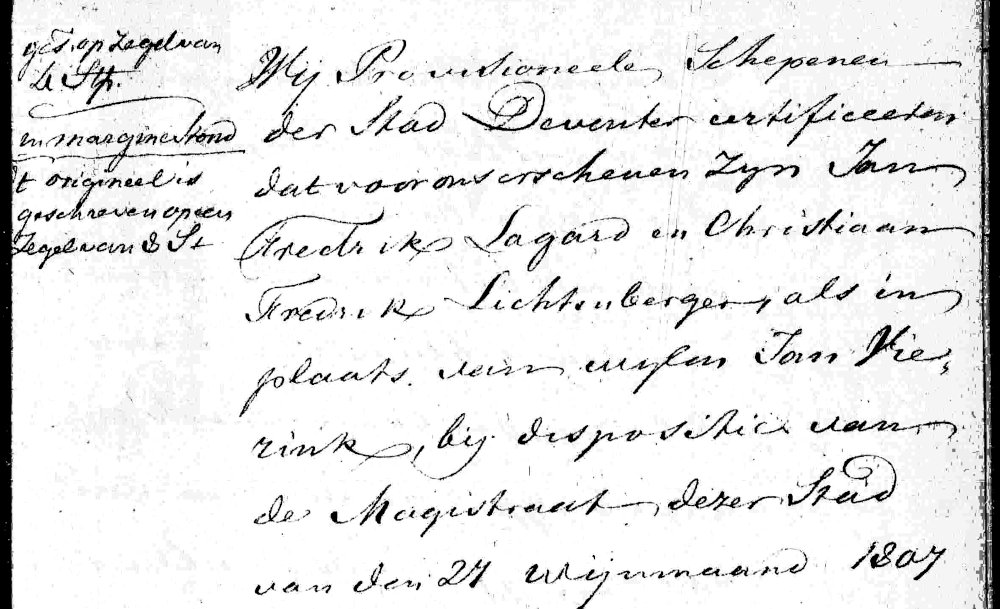 get. op Zegel van
6 Stp.
in margine stond
't origineel is
geschreven op een
Zegel van 8 St
Wij Provisioneele Schepenen
der Stad Deventer certificeeren
dat voor ons erschenen Zyn Jan
Fredrik Lagard en Christiaan
Fredrik Lichtenberger, als in
plaats van wylen Jan Vie„
rink, bij dispositie van
de Magistraat dezer Stad
van den 27 Wijnmaand 1807